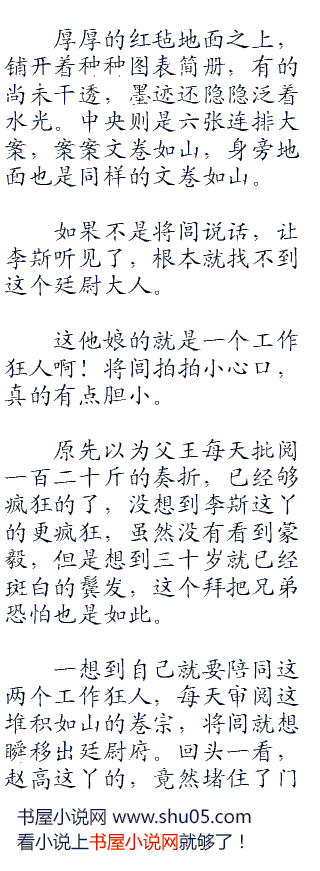 厚厚的红毡地面之上，
铺开着种种图表简册，有的
尚未干透，墨迹还隐隐泛着
水光。中央则是六张连排大
案，案案文卷如山，身旁地
面也是同样的文卷如山。
如果不是将闾说话，让
李斯听见了，根本就找不到
这个廷尉大人。
这他娘的就是一个工作
狂人啊！将闾拍拍小心口，
真的有点胆小。
原先以为父王每天批阅
一百二十斤的奏折，已经够
疯狂的了，没想到李斯这丫
的更疯狂，虽然没有看到蒙
毅，但是想到三十岁就已经
斑白的鬓发，这个拜把兄弟
恐怕也是如此。
一想到自己就要陪同这
两个工作狂人，每天审阅这
堆积如山的卷宗，将闾就想
瞬移出廷尉府。回头一看，
赵高这丫的，竟然堵住了门
书屋小说网 www.shu05.com
看小说上书屋小说网就够了！